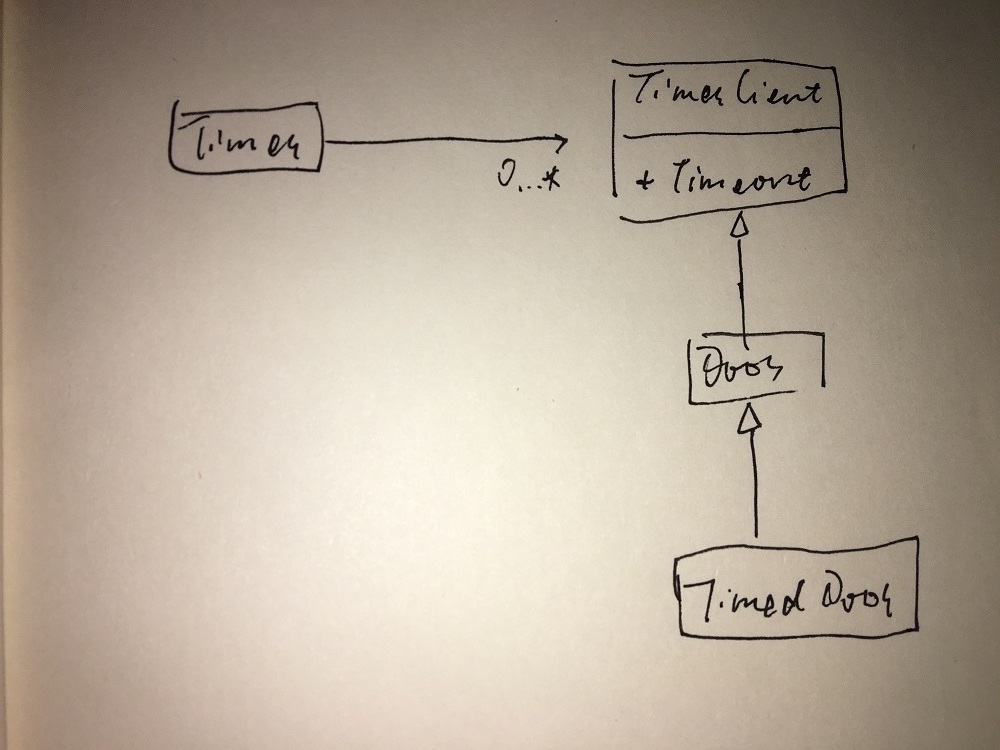 Timer
0...*
Timer Client
+ Timeout
Door
Timed Door